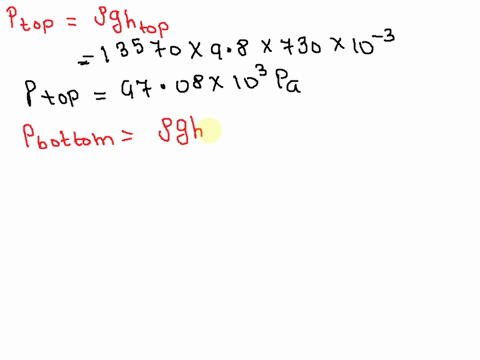 Ptop = ρghtop
= 13570 × 9.8 × 730 × 10⁻³
Ptop = 97.08 × 10³ Pa
Pbottom = ρgh